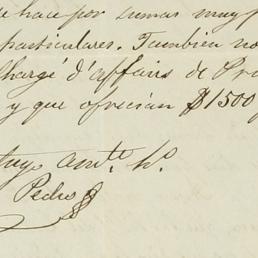 se hace por sumas muy p
particulares. Tambien no
Chargé d'affairs de Pr
y que ofrecian $1500
tuyo amte. h.
Pedro